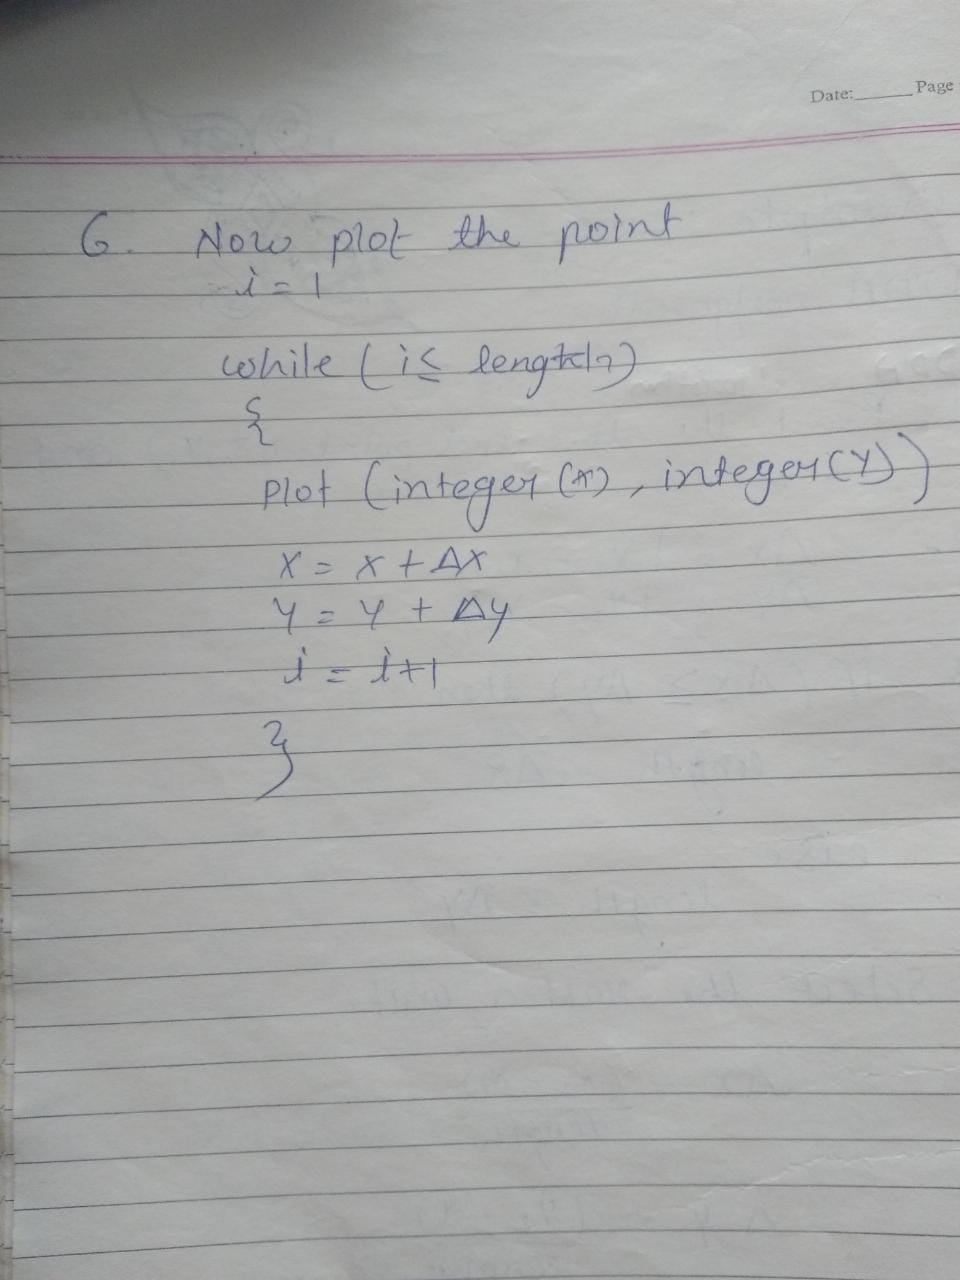 Date:______ Page
6. Now plot the point
i = 1
while (i ≤ length)
{
plot (integer (x), integer (y))
x = x + Δx
y = y + Δy
i = i+1
}